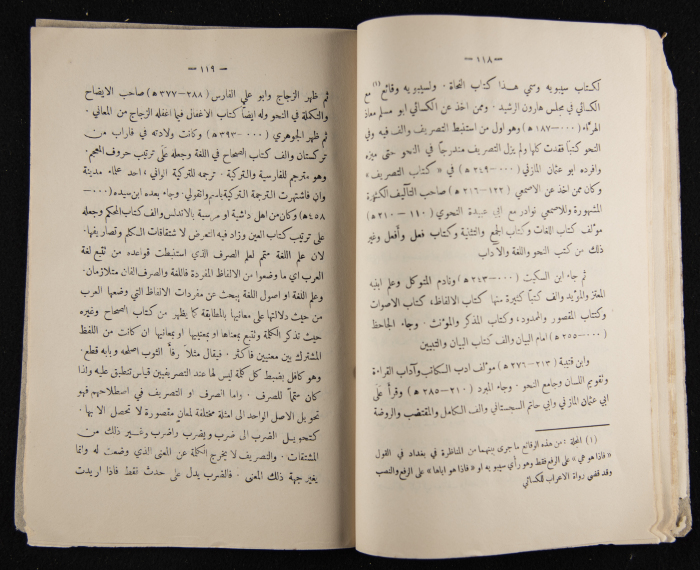 — ١١٨ —
لكتاب سيبويه وسمي هذا كتاب النحاة . ولسيبويه وقائع (١) مع
الكسائي في مجلس هارون الرشيد . وممن اخذ عن الكسائي ابو مسلم معاذ
الهراء (٠٠٠-١٨٧ ه) وهو اول من استنبط التصريف والف فيه وفي
النحو كتباً فقدت كلها ولم يزل التصريف مندرجاً في النحو حتى ميزه
وافرده ابو عثمان المازني (٠٠٠-٢٤٩ ه) في « كتاب التصريف »
وكان ممن اخذ عن الاصمعي (١٢٢-٢١٦ ه) صاحب التآليف الكثيرة
المشهورة وللاصمعي نوادر مع ابي عبيدة النحوي (١١٠-٢١٠ ه)
مؤلف كتاب اللغات وكتاب الجمع والتثنية وكتاب فعل وأفعل وغير
ذلك من كتب النحو واللغة والآداب
ثم جاء ابن السكيت (٠٠٠-٢٤٣ ه) ونادم المتوكل وعلم ابنيه
المعتز والمؤيد والف كتباً كثيرة منها كتاب الالفاظ، كتاب الاصوات
وكتاب المقصور والممدود، وكتاب المذكر والمؤنث . وجاء الجاحظ
(٠٠٠-٢٥٥ ه) امام البيان والف كتاب البيان والتبيين
وابن قتيبة (٢١٣-٢٧١ ه) مؤلف ادب الكاتب وآداب القراءة
وتقويم اللسان وجامع النحو . وجاء المبرد (٢١٠-٢٨٥ ه) وقرأ على
ابي عثمان المازني وابي حاتم السجستاني والف الكامل والمقتضب والروضة
(١) المجلة : من هذه الوقائع ما جرى بينهما من المناظرة في بغداد في القول
« فاذا هو هي » على الرفع فقط وهو رأي سيبويه او « فاذا هو اياها » على الرفع والنصب
وقد قضى رواة الاعراب للكسائي
— ١١٩ —
ثم ظهر الزجاج وابو علي الفارس (٢٨٨-٣٧٧ ه) صاحب الايضاح
والتكملة في النحو وله ايضاً كتاب الاغفال فيما اغفله الزجاج من المعاني .
ثم ظهر الجوهري (٠٠٠-٣٩٣ ه) وكانت ولادته في فاراب من
تركستان والف كتاب الصحاح في اللغة وجعله على ترتيب حروف المعجم .
وهو مترجم للفارسية والتركية . ترجمه للتركية الواني ، احد علماء مدينة
وان فاشتهرت الترجمة التركية باسم وانقولي . وجاء بعده ابن سيده (٠٠٠-
٤٥٨ ه) وكان من اهل دانية او مرسية بالاندلس والف كتاب المحكم وجعله
على ترتيب كتاب العين وزاد فيه التعرض لاشتقاقات الكلم وتصاريفها .
لان علم اللغة متمم لعلم الصرف الذي استنبطت قواعده من تتبع لغة
العرب اي ما وضعوا من الالفاظ المفردة فاللغة والصرف الفان متلازمان .
وعلم اللغة او اصول اللغة يبحث عن مفردات الالفاظ التي وضعها العرب
من حيث دلالتها على معانيها بالمطابقة كما يظهر من كتاب الصحاح وغيره
حيث تذكر الكلمة وتتبع بمعناها او بمعنييها او بمعانيها ان كانت من اللفظ
المشترك بين معنيين فاكثر . فيقال مثلاً رفأ الثوب اصلحه وبابه قطع .
وهو كافل بضبط كل كلمة ليس لها عند التصريفيين قياس تنطبق عليه واذا
كان متمماً للصرف . واما الصرف او التصريف في اصطلاحهم فهو
تحويل الاصل الواحد الى امثلة مختلفة لمعانٍ مقصورة لا تحصل الا بها .
كتحويل الضرب الى ضرب ويضرب واضرب وغير ذلك من
المشتقات . والتصريف لا يخرج الكلمة عن المعنى الذي وضعت له وانما
يغير جهة ذلك المعنى . فالضرب يدل على حدث فقط فاذا اريدت